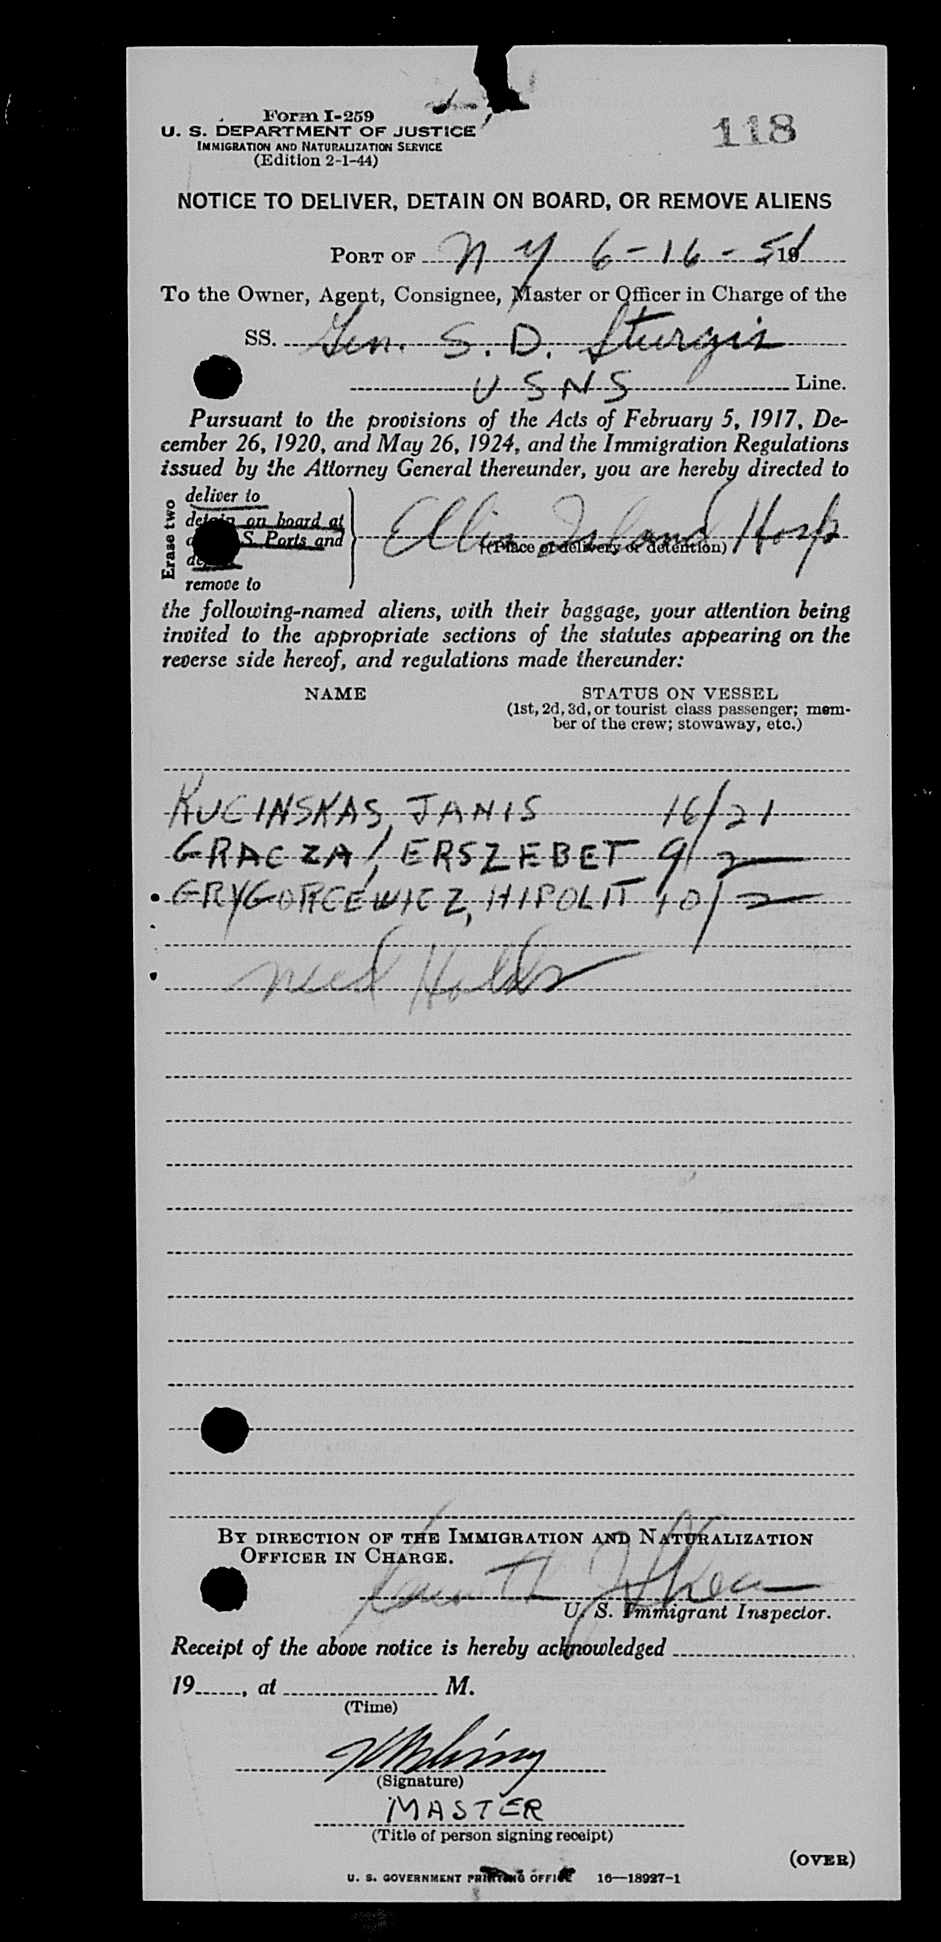 Form I-259
U. S. DEPARTMENT OF JUSTICE
IMMIGRATION AND NATURALIZATION SERVICE
(Edition 2-1-44)
118
NOTICE TO DELIVER, DETAIN ON BOARD, OR REMOVE ALIENS
PORT OF N Y 6-16-51 19
To the Owner, Agent, Consignee, Master or Officer in Charge of the
SS. Gen. S. D. Sturgis
USNS Line.
Pursuant to the provisions of the Acts of February 5, 1917, De-
cember 26, 1920, and May 26, 1924, and the Immigration Regulations
issued by the Attorney General thereunder, you are hereby directed to
Erase two
deliver to
detain on board at
S. Ports and
remove to
Ellis Island Hosp
(Place of delivery or detention)
the following-named aliens, with their baggage, your attention being
invited to the appropriate sections of the statutes appearing on the
reverse side hereof, and regulations made thereunder:
NAME STATUS ON VESSEL
(1st, 2d, 3d, or tourist class passenger; mem-
ber of the crew; stowaway, etc.)
KUCINSKAS, JANIS 16/21
GRACZA, ERSZEBET 9/2
GRYGORCEWICZ, HIPOLIT 10/2
Med Holds
BY DIRECTION OF THE IMMIGRATION AND NATURALIZATION
OFFICER IN CHARGE.
U. S. Immigrant Inspector.
Receipt of the above notice is hereby acknowledged
19, at M.
(Time)
(Signature)
MASTER
(Title of person signing receipt)
(OVER)
U. S. GOVERNMENT PRINTING OFFICE 16—18927-1